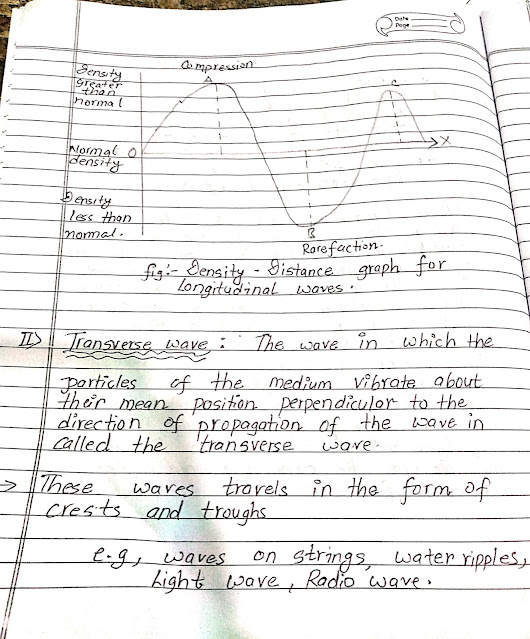 Date
Page
Compression
A
C
Density
Greater
than
normal
Normal
density
O
X
Density
less than
normal.
B
Rarefaction.
fig:- Density - Distance graph for
Longitudinal waves.
II> Transverse wave : The wave in which the
particles of the medium vibrate about
their mean position perpendicular to the
direction of propagation of the wave in
called the transverse wave.
→ These waves travels in the form of
crests and troughs
e.g, waves on strings, water ripples,
Light wave, Radio wave.